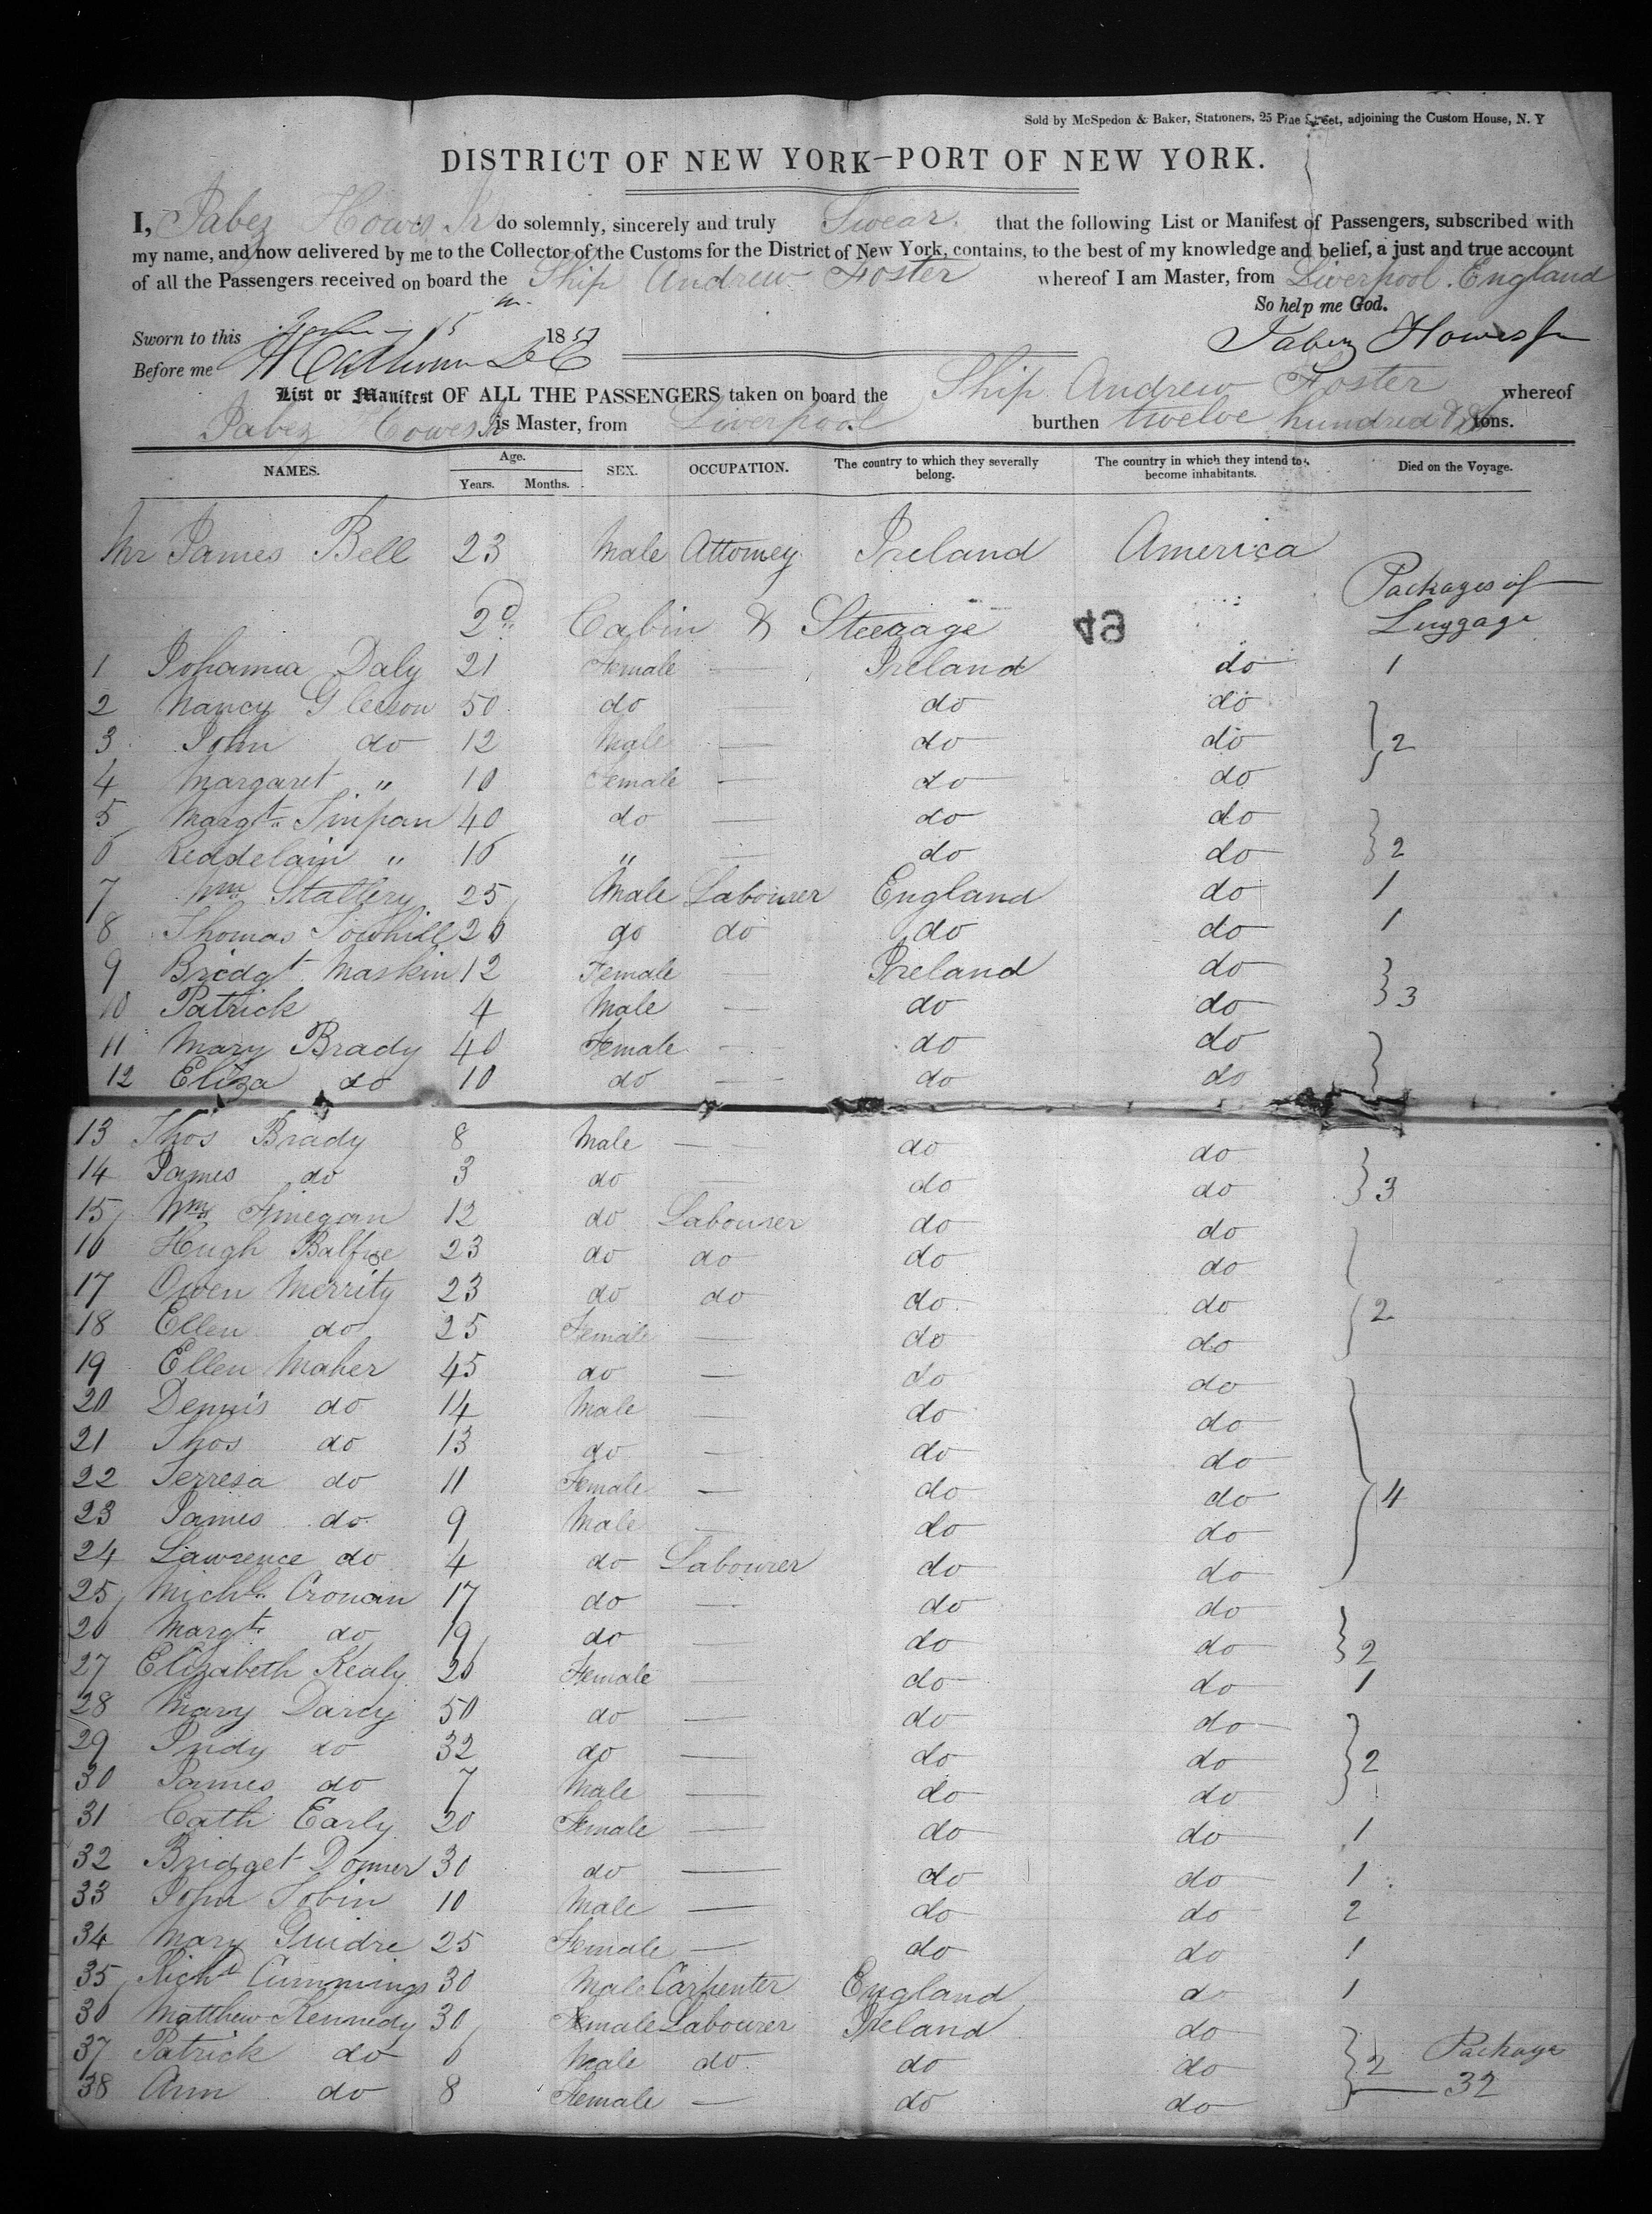 Sold by McSpedon & Baker, Stationers, 25 Pine Street, adjoining the Custom House, N. Y
DISTRICT OF NEW YORK—PORT OF NEW YORK.
I, Jabez Howes Jr do solemnly, sincerely and truly Swear that the following List or Manifest of Passengers, subscribed with
my name, and now delivered by me to the Collector of the Customs for the District of New York, contains, to the best of my knowledge and belief, a just and true account
of all the Passengers received on board the Ship Andrew Foster whereof I am Master, from Liverpool. England
So help me God.
Sworn to this 15 185
Jabez Howes Jr
Before me
List or Manifest OF ALL THE PASSENGERS taken on board the Ship Andrew Foster whereof
Jabez Howes Jr is Master, from Liverpool burthen twelve hundred tons.
NAMES. Age. Years. Months. SEX. OCCUPATION. The country to which they severally belong. The country in which they intend to become inhabitants. Died on the Voyage.
Mr James Bell 23 Male Attorney Ireland America
2d Cabin & Steerage 49 Packages of Luggage
1 Johanna Daly 21 Female — Ireland do 1
2 Nancy Gleeson 50 do — do do
3 John do 12 Male — do do } 2
4 Margaret " 10 Female — do do
5 Margt. 40 do — do do
6 " 16 " — do do } 2
7 Wm Stattery 25 Male Labourer England do 1
8 Thomas Towhill 26 do do do do 1
9 Bridgt Maskin 12 Female — Ireland do
10 Patrick 4 Male — do do } 3
11 Mary Brady 40 Female — do do
12 Eliza do 10 do — do do }
13 Thos Brady 8 Male — do do
14 James do 3 do — do do } 3
15 Wm Finegan 12 do Labourer do do
16 Hugh Balfe 23 do do do do
17 Owen Merrity 23 do do do do 2
18 Ellen do 25 Female — do do
19 Ellen Maher 45 do — do do
20 Dennis do 14 Male — do do
21 Thos do 13 do — do do
22 Terresa do 11 Female — do do 4
23 James do 9 Male — do do
24 Lawrence do 4 do Labourer do do
25 Michl. Cronan 17 do — do do
26 Margt. do 19 do — do do } 2
27 Elizabeth Kealy 26 Female — do do 1
28 Mary Darcy 50 do — do do
29 Judy do 32 do — do do } 2
30 James do 7 Male — do do
31 Cath Early 20 Female — do do 1
32 Bridget 30 do — do do 1
33 John Tobin 10 Male — do do 2
34 Mary Guidre 25 Female — do do 1
35 Richd Cummings 30 Male Carpenter England do 1
36 Matthew Kennedy 30 Female Labourer Ireland do
37 Patrick do 6 Male do do do } 2 Package
38 Ann do 8 Female — do do 32